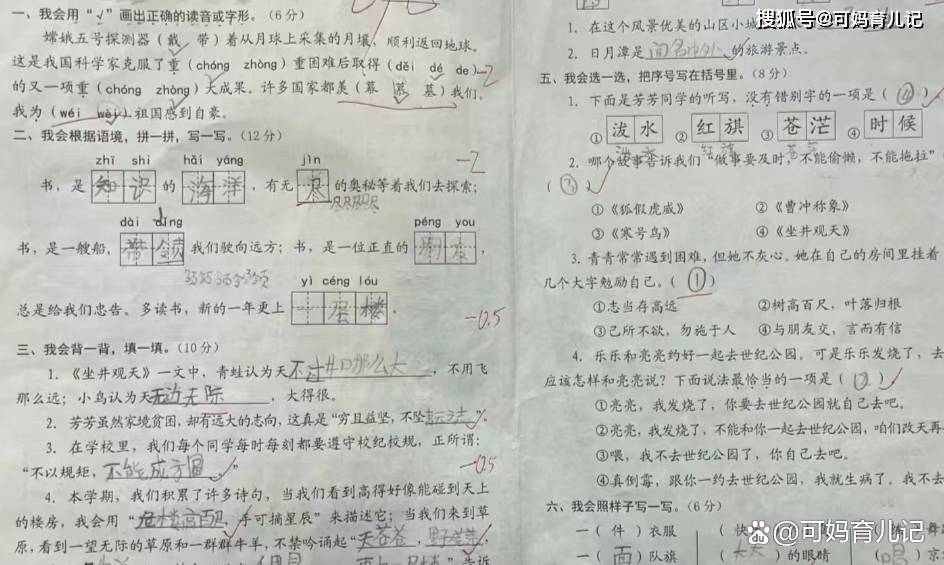 一、我会用“√”画出正确的读音或字形。（6分）
嫦娥五号探测器（戴 带）着从月球上采集的月壤，顺利返回地球。
这是我国科学家克服了重（chóng zhòng）重困难后取得（děi dé de）
的又一项重（chóng zhòng）大成果。许多国家都羡（幕 慕 墓）我们，
我为（wéi wèi）祖国感到自豪。
-2
二、我会根据语境，拼一拼，写一写。（12分）
zhī shi hǎi yáng jìn
书，是 知识 的 海洋 ，有无 尽 的奥秘等着我们去探索；
-2
dài lǐng péng you
书，是一艘船， 带领 我们驶向远方；书，是一位正直的 朋友 ，
yì céng lóu
总是给我们忠告。多读书，新的一年更上 一层楼 。
-0.5
三、我会背一背，填一填。（10分）
1．《坐井观天》一文中，青蛙认为天不过井口那么大，不用飞
那么远；小鸟认为天无边无际，大得很。
2．芳芳虽然家境贫困，却有远大的志向，这真是“穷且益坚，不坠
3．在学校里，我们每个同学每时每刻都要遵守校纪校规，正所谓：
“不以规矩，不能成方圆”
-0.5
4．本学期，我们积累了许多诗句，当我们看到高得好像能碰到天上
的楼房，我会用“危楼高百尺，手可摘星辰”来描述它；当我们来到草
原，看到一望无际的草原和一群群牛羊，不禁吟诵起“天苍苍，野茫茫，
告诉
1．在这个风景优美的山区小城
2．日月潭是闻名中外的旅游景点。
五、我会选一选，把序号写在括号里。（8分）
1．下面是芳芳同学的听写，没有错别字的一项是（④）
①泼水 ②红旗 ③苍茫 ④时候
2．哪个故事告诉我们“做事要及时，不能偷懒，不能拖拉”
（③）
①《狐假虎威》 ②《曹冲称象》
③《寒号鸟》 ④《坐井观天》
3．青青常常遇到困难，但她不灰心。她在自己的房间里挂着
几个大字勉励自己。（①）
①志当存高远 ②树高百尺，叶落归根
③己所不欲，勿施于人 ④与朋友交，言而有信
4．乐乐和亮亮约好一起去世纪公园。可是乐乐发烧了，去
应该怎样和亮亮说？下面说法最恰当的一项是（②）
①亮亮，我发烧了，你要去世纪公园就自己去吧。
②亮亮，我发烧了，不能和你一起去世纪公园，咱们改天再
③喂，我不去世纪公园了，你自己去吧。
④真倒霉，跟你一约去世纪公园，我就生病了。我不去
六、我会照样子写一写。（6分）
一（件）衣服 （快
一（面）队旗 （大大）的眼睛 （唱）京
搜狐号@可妈育儿记
@可妈育儿记